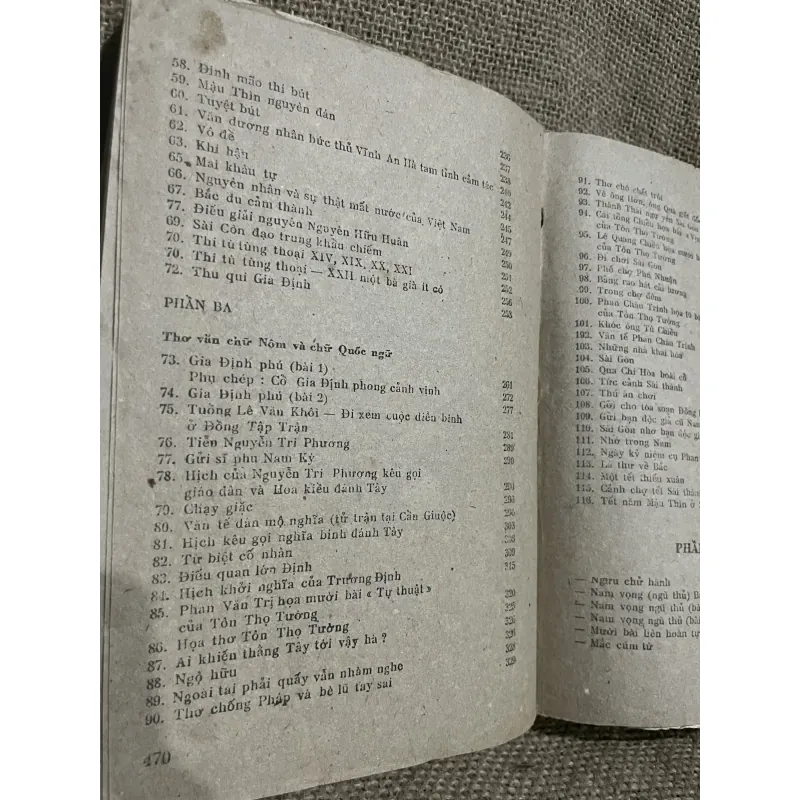 58. Đinh mão thi bút
59. Mậu Thìn nguyên đán
60. Tuyệt bút
61. Văn dương nhân bức thủ Vĩnh An Hà tam tỉnh cảm tác
62. Vô đề
63. Khi hận
65. Mai khâu tự
66. Nguyên nhân và sự thật mất nước của Việt Nam
67. Bắc du cảm thành
77. Điếu giải nguyên Nguyễn Hữu Huân
69. Sài Côn đạo trung khẩu chiếm
70. Thi tù tùng thoại XIV, XIX, XX, XXI
70. Thi tù tùng thoại — XXII một bà già ít có
72. Thu qui Gia Định
236
237
238
240
242
244
245
247
249
250
251
252
256
258
PHẦN BA
Thơ văn chữ Nôm và chữ Quốc ngữ
73. Gia Định phú (bài 1) 261
Phụ chép : Cổ Gia Định phong cảnh vịnh
74. Gia Định phú (bài 2) 272
75. Tuồng Lê Văn Khôi — Đi xem cuộc diễn binh 277
ở Đồng Tập Trận
76. Tiễn Nguyễn Tri Phương 281
77. Gửi sĩ phu Nam Kỳ 289
78. Hịch của Nguyễn Tri Phương kêu gọi 290
giáo dân và Hoa kiều đánh Tây
79. Chạy giặc
80. Văn tế dân mộ nghĩa (tử trận tại Cần Giuộc)
81. Hịch kêu gọi nghĩa binh đánh Tây 303
82. Từ biệt cố nhân 308
83. Điếu quan lớn Định 309
84. Hịch khởi nghĩa của Trương Định 315
85. Phan Văn Trị họa mười bài « Tự thuật »
của Tôn Thọ Tường 320
86. Họa thơ Tôn Thọ Tường 325
87. Ai khiến thằng Tây tới vậy hà ? 326
88. Ngộ hữu 328
89. Ngoài tai phải quấy vẫn nhàm nghe 328
90. Thơ chống Pháp và bè lũ tay sai 329
470
91. Thơ chó chết trôi
92. Vô ông Hớn, ông Quá giết
93. Thành Thái ngự yên Sài Gòn
94. Cai tổng Chiêu họa bài
của Tôn Thọ Tường
95. Lê Quang Chiểu họa mười
của Tôn Thọ Tường
96. Đi chơi Sài Gòn
97. Phố chợ Phú Nhuận
98. Bảng rao hát cải lương
99. Trong chợ đêm
100. Phan Châu Trinh họa 10
của Tôn Thọ Tường
101. Khóc ông Tú Chiểu
102. Văn tế Phan Châu Trinh
103. Những nhà khai hóa
104. Sài Gòn
105. Qua Chí Hòa hoài cổ
106. Tức cảnh Sài thành
107. Thú ăn chơi
108. Gửi cho tòa soạn Đông
109. Gửi bạn độc giả cũ Nam
110. Sài Gòn nhớ bạn độc
111. Nhớ trong Nam
112. Ngày kỷ niệm cụ Phan
113. Lá thư về Bắc
114. Một tết thiếu xuân
115. Cảnh chợ tết Sài thành
116. Tết năm Mậu Thìn ở
PHẦN
— Ngưu chử hành
— Nam vọng (ngũ thủ)
— Nam vọng ngũ thủ (bài
— Nam vọng ngũ thủ (bài
— Mười bài liên hoàn tự
— Mắc cúm từ